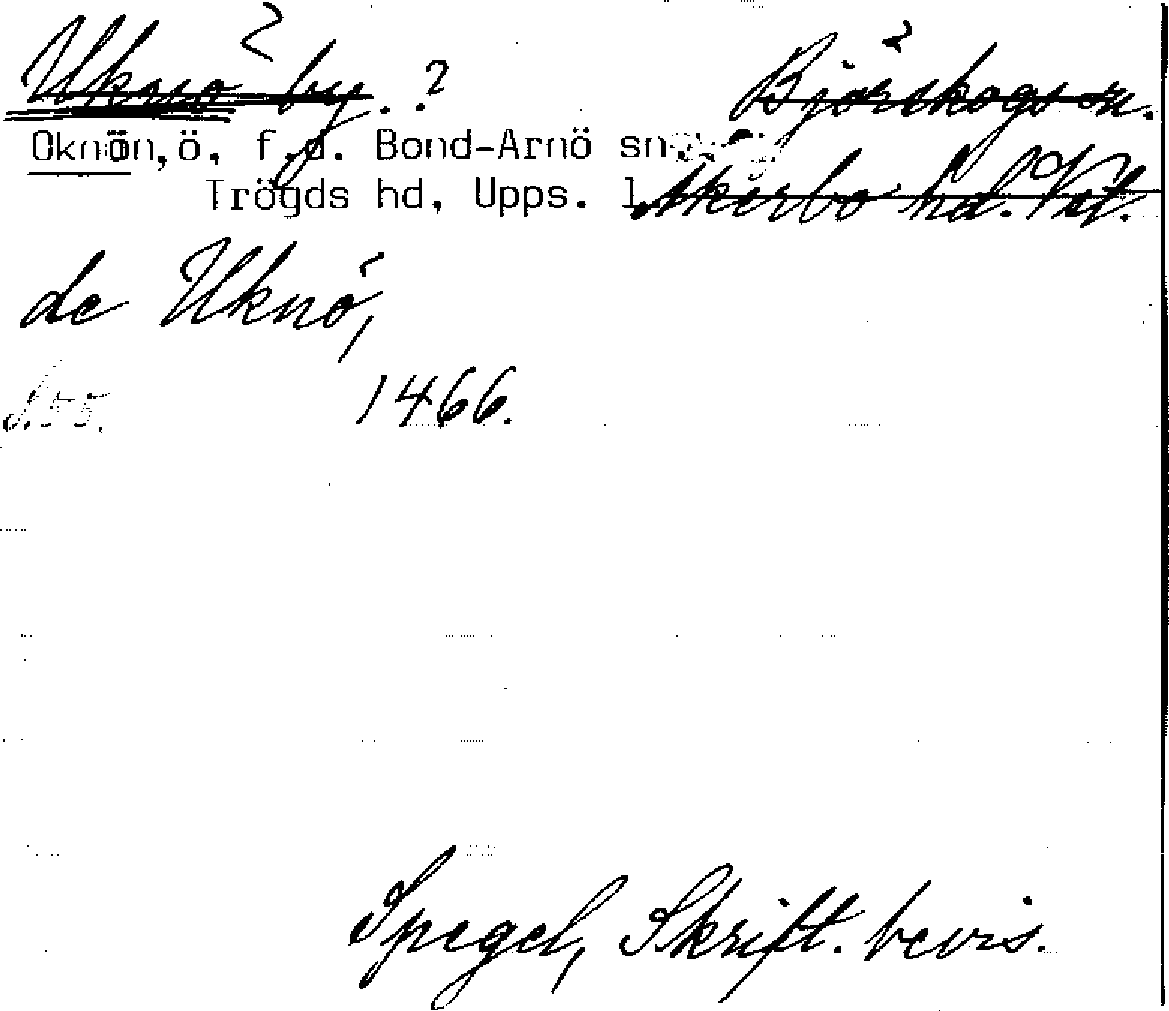 Uknö by. ? Björskogs sn.
Oknön, ö, f.d. Bond-Arnö sn.
Trögds hd, Upps. l. Åkerbo hd. Vstm.
de Uknö,
S. 55. 1466.
Spegel, Skrift. bevis.